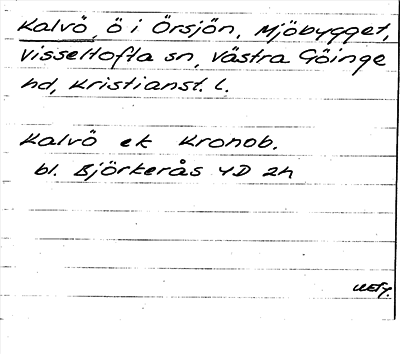 Kalvö, ö i Örsjön, Mjöbygget,
Visseltofta sn, Västra Göinge
hd, Kristianst. l.
Kalvö ek Kronob.
bl. Björkerås 4D 2h